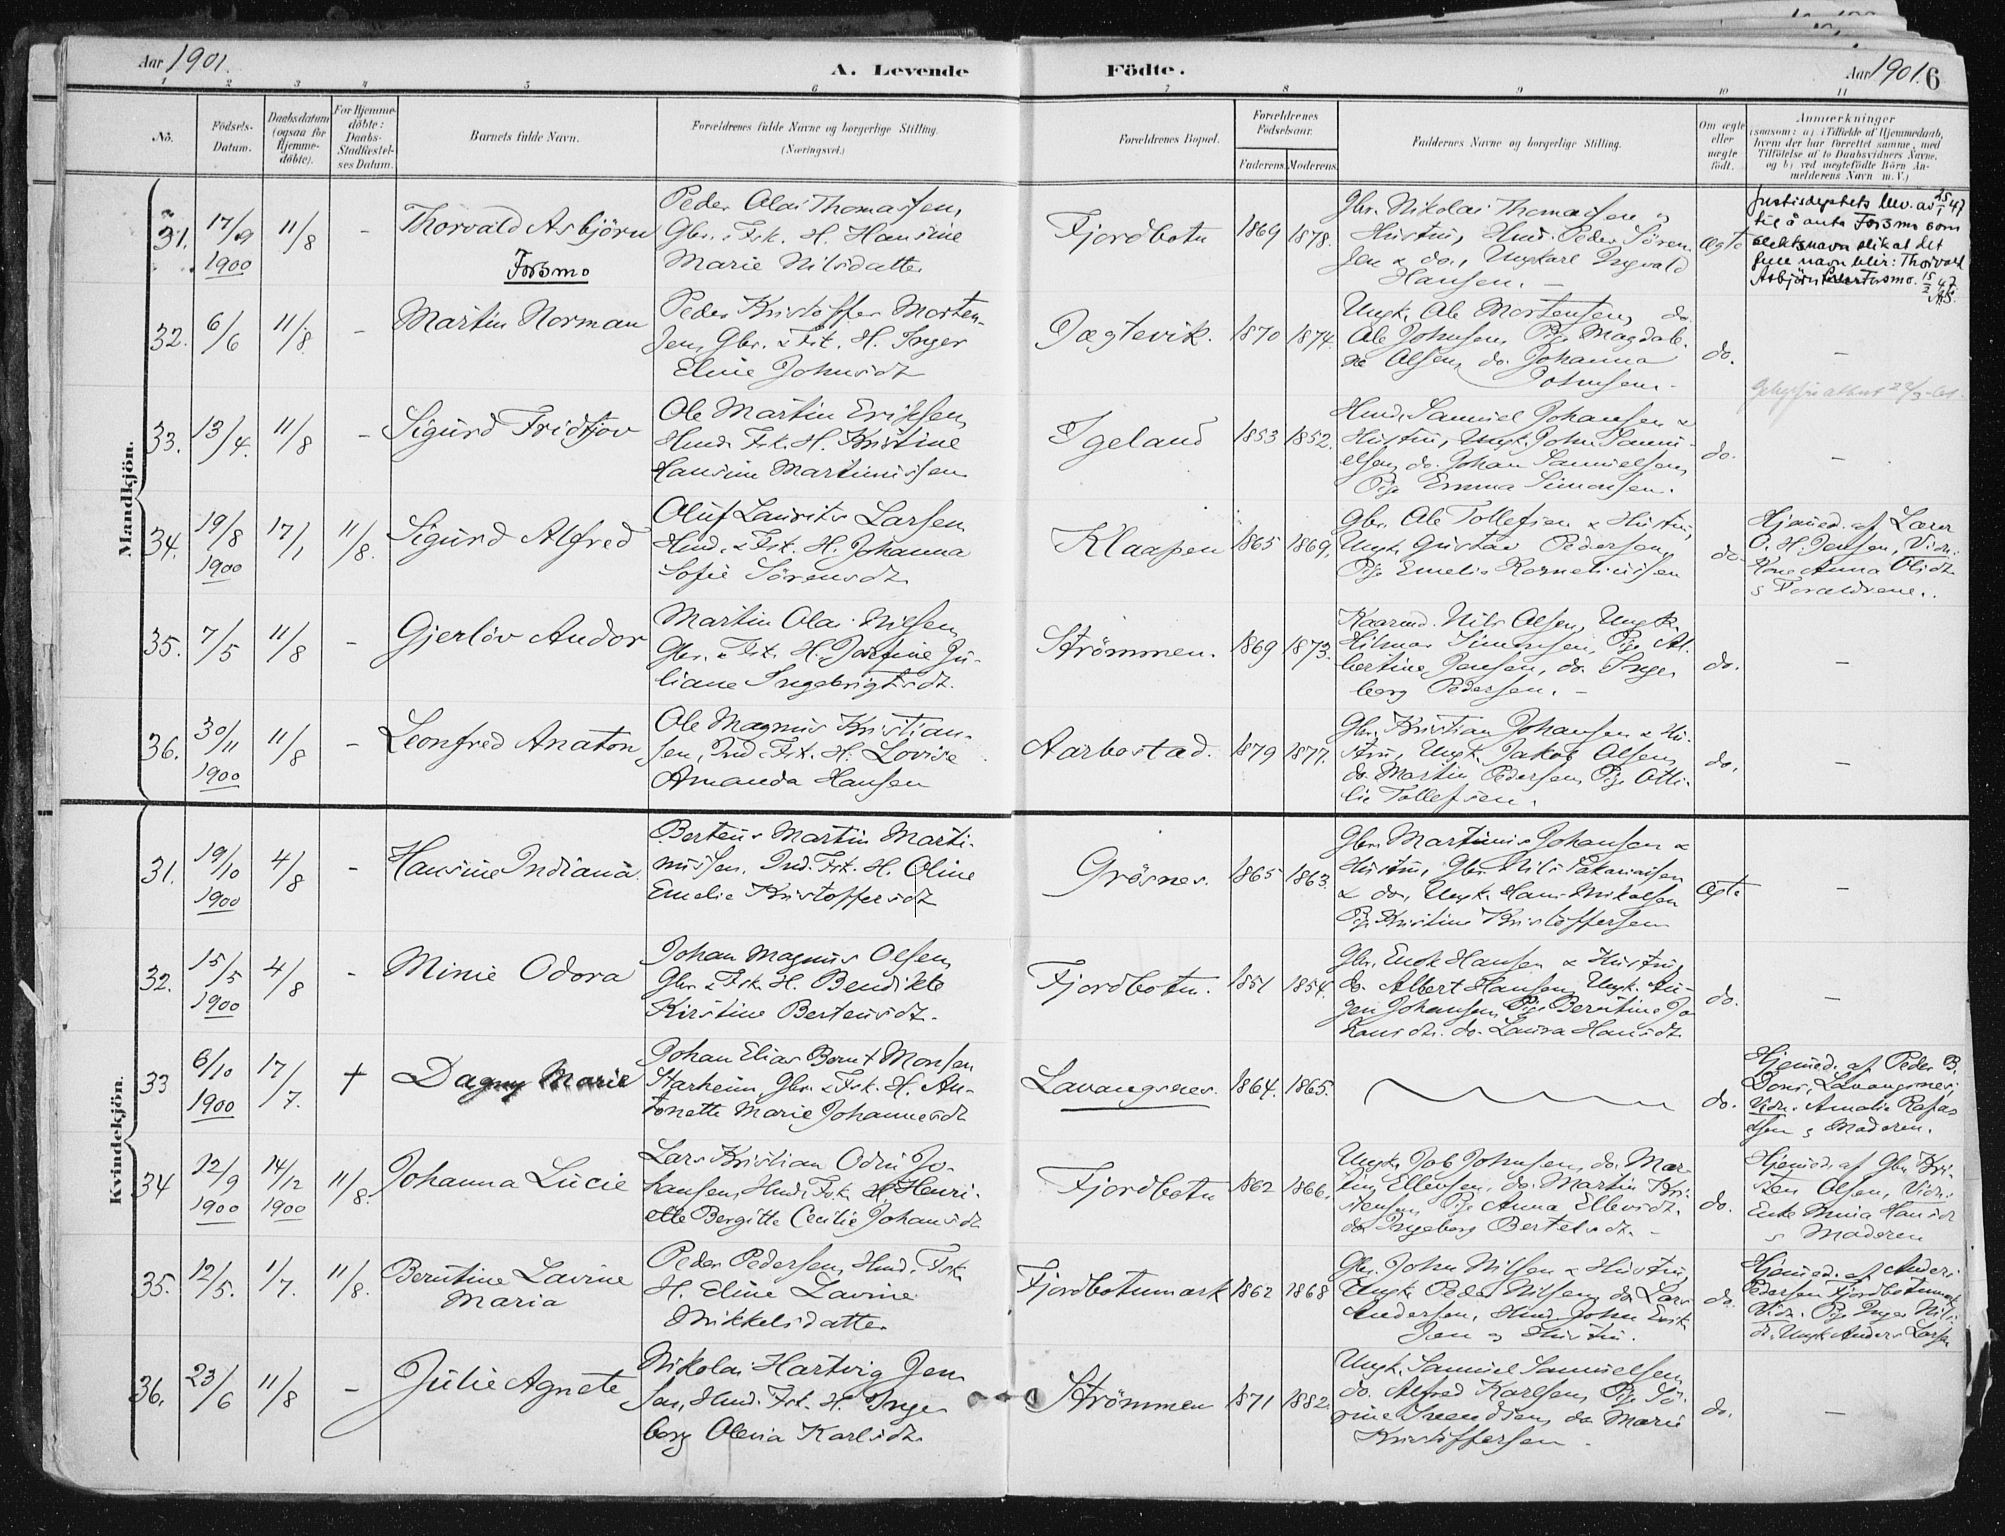 Aar 1901.
A. Levende
Födte.
Aar 1901. 6
1 2 3 4 5 6 7 8 9 10 11
No.
Födsels-
Datum.
Daabsdatum
(ogsaa for
Hjemme-
döbte).
For Hjemme-
döbte:
Daabs-
Stadfæstel-
ses Datum.
Barnets fulde Navn.
Forældrenes fulde Navne og borgerlige Stilling.
(Næringsvei.)
Forældrenes Bopæl.
Forældrenes
Födselsaar.
Faderens. Moderens.
Faddernes Navne og borgerlige Stilling.
Om ægte
eller
uægte
födt.
Anmærkninger
(saasom: a) i Tilfælde af Hjemmedaab,
hvem der har forrettet samme, med
Tilföielse af to Daabsvidners Navne.
og b) ved uegtefödte Börn An-
melderens Navn m. V.)
Mandkjön.
31. 17/9 1900 11/8 - Thorvald Asbjörn
Forsmo
Peder Olai Thomassen,
Gbr. & Fsk. H. Hansine
Marie Nilsdatter
Fjordbotn 1869 1878.
Gbr. Nikolai Thomassen &
Hustru, Hmd. Peder Sören-
sen & do., Ungkarl Ingvald
Hansen. -
ægte
Justisdeptets bev. av 25/1 47
til å anta Forsmo som
slektsnavn slik at det
fulle navn blir: Thorvald
Asbjörn Forsmo. 15/2 47
32. 6/6 11/8 - Martin Norman
Peder Kristoffer Morten-
sen, Gbr. & Fsk. H. Inger
Eline Johnsdt
Jægtevik. 1870 1874.
Ungk. Ole Mortensen, do.
Ole Johnsen, Pige Magdale-
ne Olsen, do. Johanna
Johnsen. -
do. -
33. 13/4. 11/8 - Sigurd Fridtjov
Ole Martin Eriksen
Hmd. Fsk. H. Kristine
Hansine Martinussen
Igeland 1853 1852.
Hmd. Samuel Johansen &
Hustru, Ungk. John Samu-
elsen, do. Johan Samuelsen,
Pige Emma Simonsen.
do. -
34. 19/8 1900 17/1 11/8. Sigurd Alfred
Oluf Laurits Larsen,
Hmd. & Fsk. H. Johanna
Sofie Sörensdt
Klaapen 1865 1869.
Gbr. Ole Tollefsen & Hustru,
Ungk. Gustav Pedersen,
Pige Emelie Korneliussen
do.
Hjemmed. af Lærer
O. H. Jensen, Vidn.
Kone Anna Olsdt
& Forældrene.
35. 7/5 11/8 - Gjerlöv Andor
Martin Olai Nilsen
Gbr. & Fsk. H. Josefine Ju-
liane Ingebrigtsdt.
Strömmen. 1869 1873.
Kaarmd. Nils Olsen, Ungk.
Hilmar Simonsen, Pige Al-
bertine Jensen, do. Inge-
borg Pedersen. -
do. -
36. 30/11 1900 11/8 - Leonfred Anaton
Ole Magnus Kristian-
sen, Ind. Fsk. H. Lovise
Amanda Hansen
Aarbostad. 1879 1877.
Gbr. Kristian Johansen & Hu-
stru, Ungk. Jakob Olsen,
do. Martin Pedersen, Pige Otti-
lie Tollefsen.
do. -
Kvindekjön.
31. 19/10 1900 4/8 - Hansine Indiana.
Berteus Martin Marti-
nussen, Ind. Fsk. H. Oline
Emelie Kristoffersdt
Grösnes. 1865 1863.
Gbr. Martinus Johansen &
Hustru, Gbr. Nils Sakariassen
& do., Ungk. Hans Mikalsen
Pige Kristine Kristoffersen
ægte -
32. 15/5 1900 4/8 - Minie Odora
Johan Magnus Olsen,
Gbr. & Fsk. H. Bendikte
Kirstine Bertensdt.
Fjordbotn. 1851 1854.
Gbr. Enok Hansen & Hustru,
do. Albert Hansen, Ungk. Au-
gen Johansen, Pige Berntine Jo-
hansdt. do. Laura Hansdt
do. -
33 6/10 1900 17/7. † Dagny Marie
Johan Elias Bernt Monsen
Starheim, Gbr. & Fsk. H. An-
tonette Marie Johannesdt
Lavangsnes. 1864. 1865.
do.
Hjemmed. af Peder B.
Dons, Lavangsnes;
Vidn. Amalie Rafa-
elsen & Moderen.
34 12/9 1900 14/12 1900 11/8. Johanna Lucie
Lars Kristian Odin Jo-
hansen, Hmd. Fsk. H. Henri-
ette Bergitte Cecilie Johansdt
Fjordbotn 1862 1866.
Ungk. Job Johnsen, do. Mar-
tin Ellevsen, do. Martin Kri-
stensen, Pige Anna Ellevsdt.
do. Ingeborg Bertelsdt. -
do.
Hjemmed. af Gbr. Kri-
sten Olsen, Vidn.
Enke Anna Hansdt
& Moderen
35. 12/5. 1/7. 11/8. Berntine Lavine
Maria
Peder Pedersen, Hmd. Fsk.
H. Eline Lavine
Mikkelsdatter
Fjordbotnmark 1862 1868
Gbr. John Nilsen & Hustru,
Ungk. Peder Nilsen, do. Lars
Andersen, Hmd. John Erik-
sen & Hustru.
do.
Hjemmed. af Anders
Pedersen Fjordbotnmark
Vidn. Pige Inger Nils-
dt. Ungk. Anders Larsen
36. 23/6 11/8 - Julie Agnete
Nikolai Hartvig Jen-
sen, Hmd. Fsk. H. Inge-
borg Olevia Karlsdt.
Strömmen 1871 1882.
Ungk. Samuel Samuelsen,
do. Alfred Karlsen, Pige Sö-
rine Svendsen, do. Marie
Kristoffersen. -
do. -